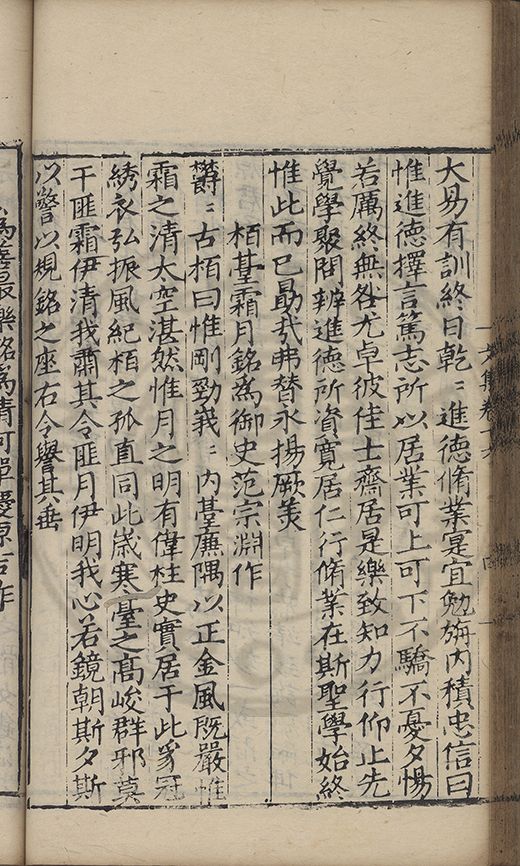 大易有訓終日乾〻進德脩業寔宜勉旃內積忠信曰
惟進德擇言篤志所以居業可上可下不驕不憂夕惕
若厲終無咎尤卓彼佳士齋居是樂致知力行仰止先
覺學聚問辨進德所資寬居仁行脩業在斯聖學始終
惟此而已勗哉弗替永揚厥美
栢臺霜月銘為御史范宗淵作
欝〻古栢曰惟剛勁峩〻內臺廉隅以正金風既嚴惟
霜之清太空湛然惟月之明有偉柱史實居于此豸冠
綉衣弘振風紀栢之孤直同此歲寒臺之高峻群邪莫
干匪霜伊清我肅其令匪月伊明我心若鏡朝斯夕斯
以警以規銘之座右令譽其垂
為善最樂銘為清河